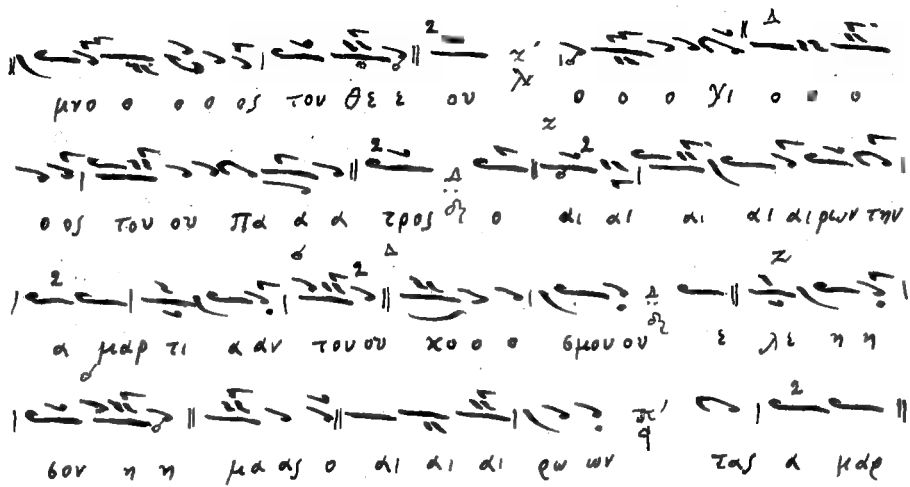 μνο ο ο ο ος του θε ε ου ο ο ο γι ο ο ο
ο ος του ου Πα α α τρος ο αι αι αι αι αι ρων την
α μαρ τι α αν του ου κο ο ο σμου ου ε λε η η
σον η η μα ας ο αι αι αι ρω ων τας α μαρ